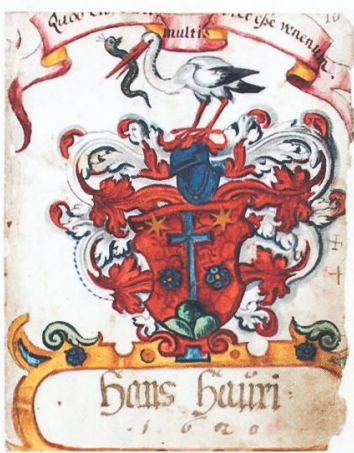 Quod esse venenum.
multis
Hans Hauri
1 6 2 0